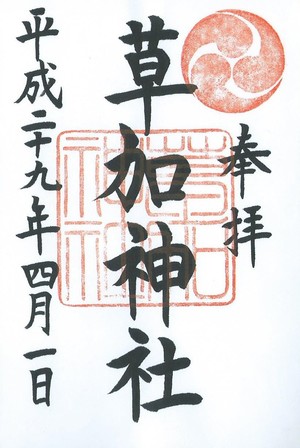 奉拝
草加神社
平成二十九年四月一日